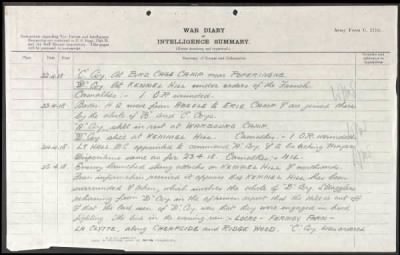 WAR DIARY
or
INTELLIGENCE SUMMARY.
(Erase heading not required.)
Army Form C. 2118.
Instructions regarding War Diaries and Intelligence
Summaries are contained in F. S. Regs., Part II.
and the Staff Manual respectively. Title pages
will be prepared in manuscript.
Place
Date
Hour
Summary of Events and Information
22.4.18 "C" Coy. At BIRD CAGE CAMP near POPERINGHE.
"D" Coy. At KEMMEL HILL under orders of the French
Casualties :- 1 O.R. wounded.
23.4.18 Battn. H.Q. move from ABEELE to ERIE CAMP & are joined there
by the whole of "B" and "C" Coys.
"A" Coy. still in rest at WARBOURG CAMP.
"D" Coy. still at KEMMEL HILL. Casualties :- 1 O.R. wounded
24.4.18 appointed to command "A" Coy.
Dispositions same as for 23.4.18. Casualties :- NIL.
25.4.18 Enemy launched strong attacks on KEMMEL HILL & northwards.
From information received it appears that KEMMEL HILL has been
surrounded & taken, which involves the whole of "D" Coy. Stragglers
returning from "D" Coy. in the afternoon report that the hill is cut
off & that the last seen of "D" Coy. was that they were engaged in hard
fighting. The line in the evening ran - LOCRE - FERMOY FARM -
LA CLYTTE, along CHEAPSIDE and RIDGE WOOD. "C" Coy. was ordered